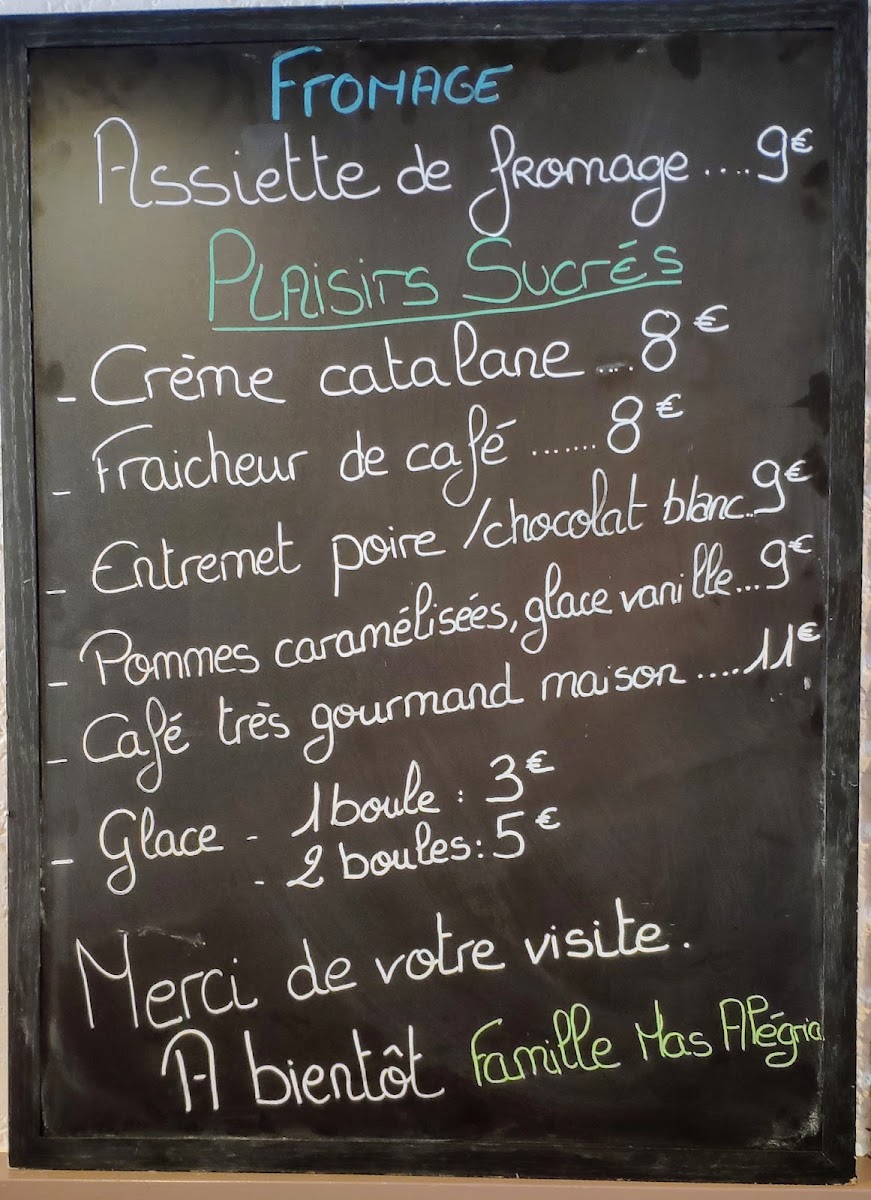 FROMAGE
Assiette de fromage ....9€
Plaisirs Sucrés
- Crème catalane ....8€
- Fraicheur de café .......8€
- Entremet poire /chocolat blanc..9€
- Pommes caramélisées, glace vanille...9€
- Café très gourmand maison ....11€
- Glace - 1 boule : 3€
- 2 boules : 5€
Merci de votre visite.
A bientôt Famille Mas Alégria